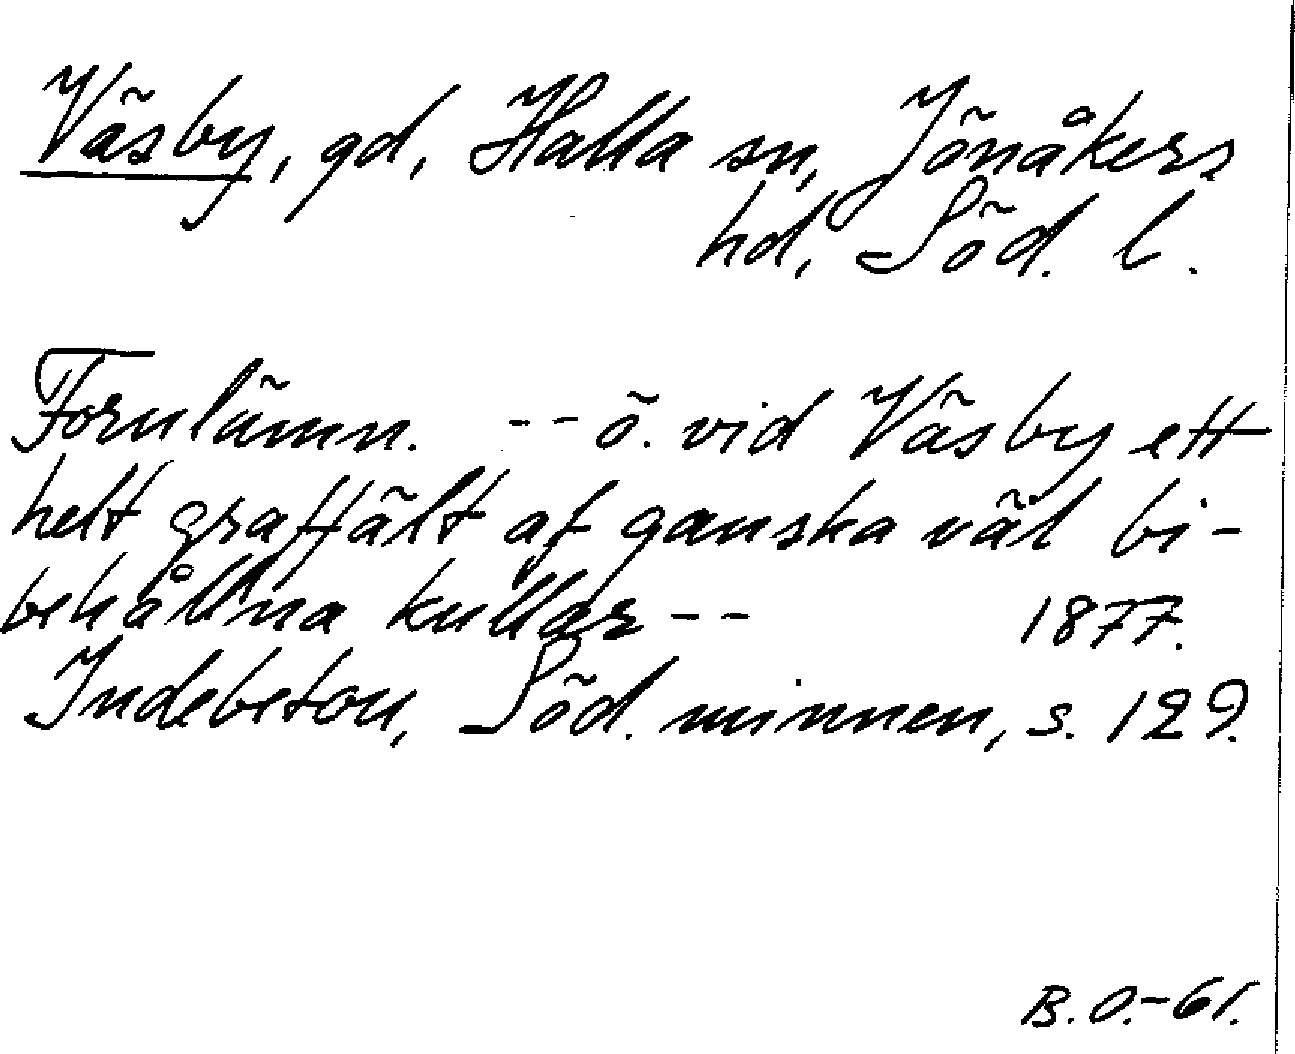 Väsby, gd, Halla sn, Jönåkers
hd, Söd. l.
Fornlämn. -- ö. vid Väsby ett
helt graffält af ganska väl bi-
behållna kullar -- 1877.
Indebetou, Söd. minnen, s. 129.
B.O.-61.